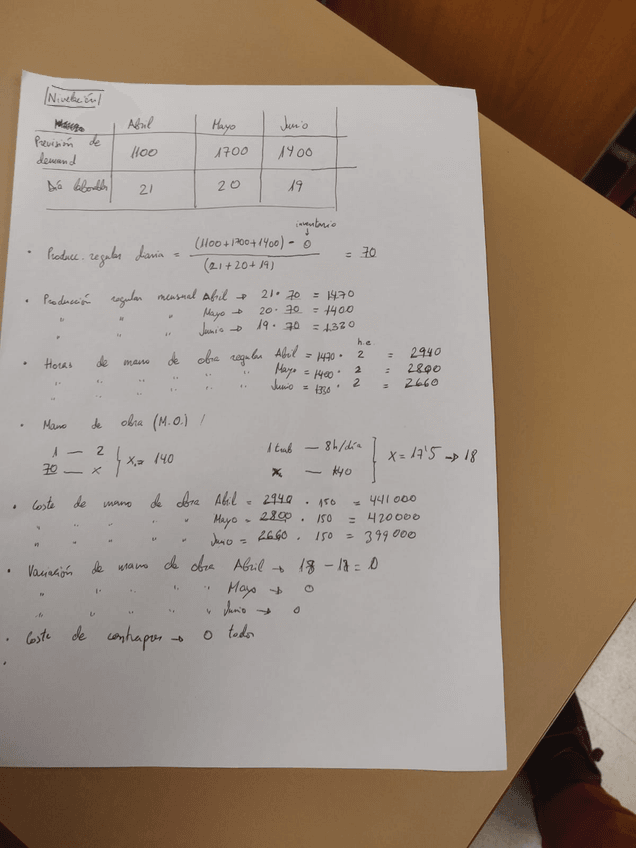 Nivelación
Abril Mayo Junio
Previsión de demand 1100 1700 1400
Día laborables 21 20 19
inventario
↓
• Producc. regular diaria = (1100+1700+1400) - 0 / (21+20+19) = 70
• Producción regular mensual Abril → 21 · 70 = 1470
" " " Mayo → 20 · 70 = 1400
" " " Junio → 19 · 70 = 1330
h.e
• Horas de mano de obra regular Abril = 1470 · 2 = 2940
" " " " " Mayo = 1400 · 2 = 2800
" " " " " Junio = 1330 · 2 = 2660
• Mano de obra (M.O.) /
1 — 2 } x = 140 1 trab — 8h/día ] x = 17'5 → 18
70 — x x — 140
• Coste de mano de obra Abril = 2940 · 150 = 441000
" " " " Mayo = 2800 · 150 = 420000
" " " " Junio = 2660 · 150 = 399000
• Variación de mano de obra Abril → 18 - 18 = 0
" " " " " Mayo → 0
" " " " " Junio → 0
• Coste de → 0 todos
•